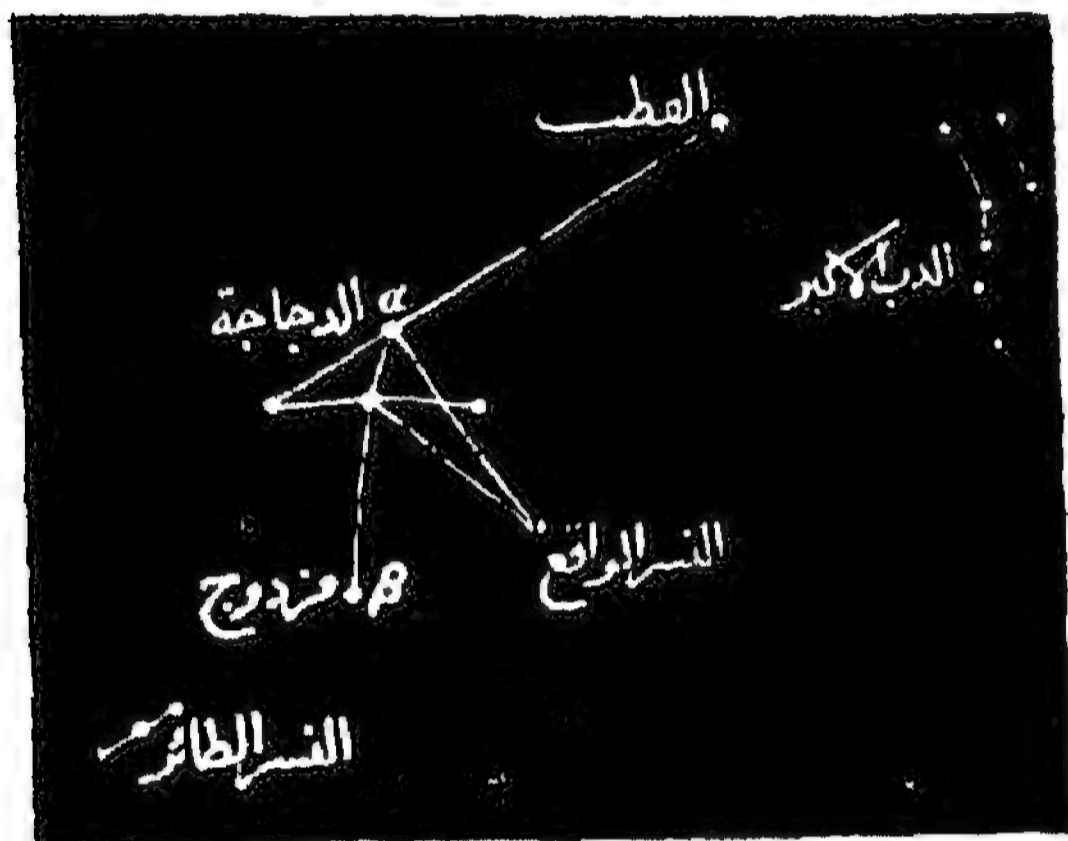 القطب
الدب الاكبر
الدجاجة α
النسر الواقع
β مزدوج
النسر الطائر